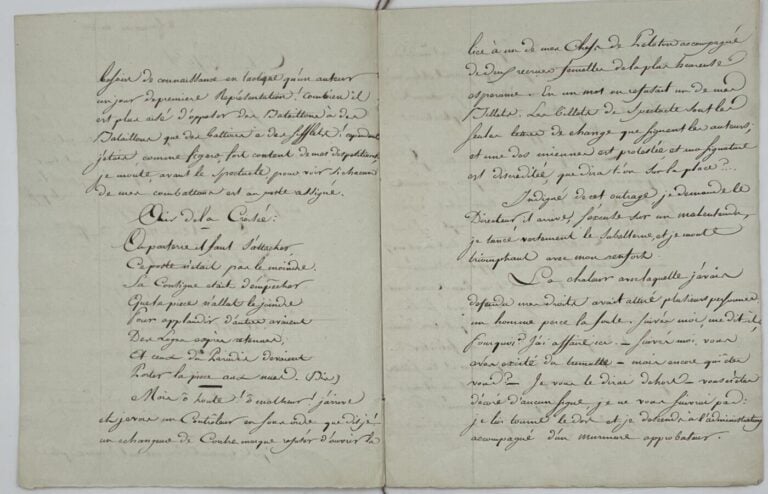 besoin de connaissance en tactique qu'un auteur
un jour de première Représentation! combien il
est plus aisé d'opposer des Bataillons à des
Bataillons que des batteurs à des sifflets! cependant
j'étais comme figaro fort content de mes dispositions
je monte avant le Spectacle pour voir si chacun
de mes combattans est au poste assigné.
Air de la Croisée:
Au parterre il faut s'attacher
Ce poste n'était pas le moindre.
Sa Consigne était d'empêcher
Que la piece n'allat le joindre
Pour applaudir d'autres avaient
Des Loges exprès retenues,
Et ceux du Paradis devaient
Porter la piece aux nues. (Bis)
Mais ô honte! ô malheur! j'arrive
et je vois un Contrôleur en
un échangeur de Contremarque refuser d'ouvrir la
lice à un de mes Chefs de Peloton accompagné
de deux recrues femelles de la plus heureuse
esperance. En un mot on refusait un de mes
Billets. Les billets de Spectacle sont les
seules lettres de change que signent les auteurs;
et une des miennes est protestée et ma signature
est discréditée que dira t'on sur la place?...
Indigné de cet outrage je demande le
Directeur il arrive, s'excuse sur un malentendu,
je tance vertement le subalterne, et je monte
triomphant avec mon renfort.
La chaleur avec laquelle j'avais
défendu mes droits avait attiré plusieurs personnes.
un homme perce la foule. suivez moi, me dit-il
pourquoi? j'ai affaire ici. - suivez moi, vous
avez excité du tumulte - mais encore qui êtes
vous? - Je vous le dirai dehors - vous n'êtes
décoré d'aucun signe, je ne vous suivrai pas:
je lui tourne le dos et je descends à l'administration
accompagné d'un murmure approbateur.